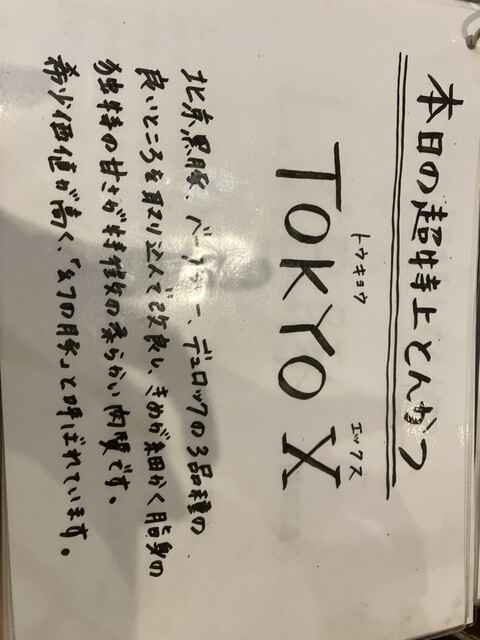 本日の超特上とんかつ
トウキョウ エックス
TOKYO X
北京黒豚、バークシャー、デュロックの3品種の
良いところを取り込んで改良し、きめが細かく脂身の
独特の甘さが特徴の柔らかい肉質です。
希少価値が高く、「幻の豚」と呼ばれています。